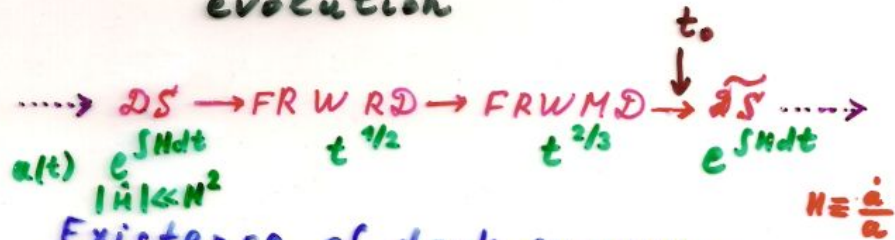 evolution
t₀
⋯→ DS → FRW RD → FRWMD → D̃S ⋯→
a(t) e^∫Hdt t^1/2 t^2/3 e^∫Hdt
|Ḣ|≪H² H≡ȧ/a
Existence of dark